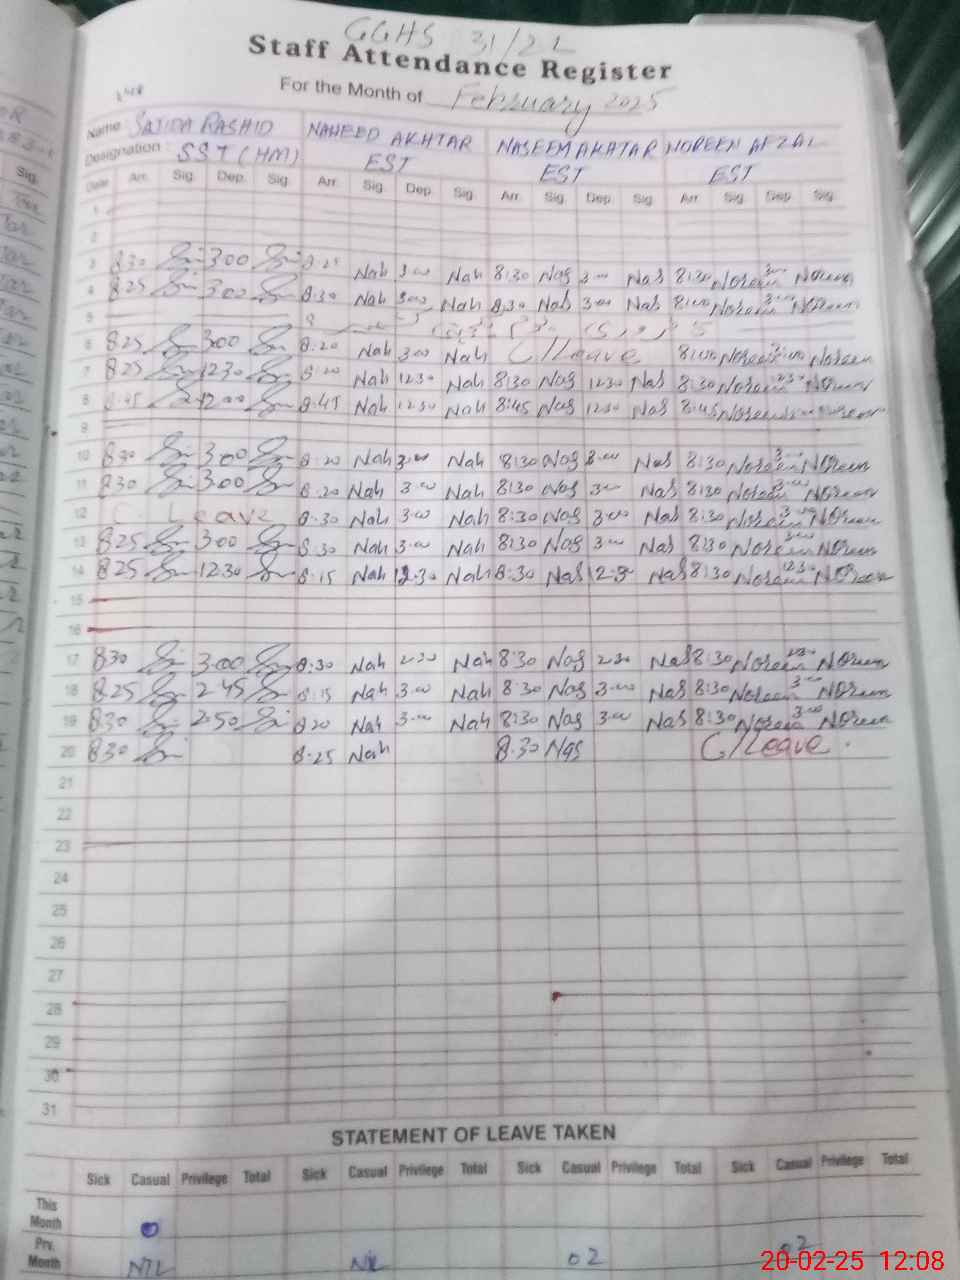 GGHS 31/2L
Staff Attendance Register
For the Month of February 2025
Name SAJIDA RASHID NAHEED AKHTAR NASEEM AKHTAR NOREEN AFZAL
Designation : SST (HM) EST EST EST
Date Arr. Sig. Dep. Sig. Arr. Sig. Dep. Sig. Arr. Sig. Dep. Sig. Arr. Sig. Dep. Sig.
1
2
3 830 300 8.25 Nah 3.00 Nah 8:30 Nas 3.00 Nas 8:30 Noreen 3.00 Noreen
4 825 300 8.30 Nah 3.00 Nah 8:30 Nas 3.00 Nas 8:00 Noreen 3.00 Noreen
5
6 825 300 8.20 Nah 3.00 Nah C/Leave 8:00 Noreen 3.00 Noreen
7 825 1230 8.20 Nah 12.30 Nah 8:30 Nas 12.30 Nas 8:30 Noreen 12.30 Noreen
8 8.45 12.00 8.45 Nah 12.30 Nah 8:45 Nas 12.30 Nas 8:45 Noreen Noreen
9
10 830 300 8.20 Nah 3.00 Nah 8:30 Nas 3.00 Nas 8:30 Noreen 3.00 Noreen
11 830 300 8.20 Nah 3.00 Nah 8:30 Nas 3.00 Nas 8:30 Noreen 3.00 Noreen
12 C. Leave 8.30 Nah 3.00 Nah 8:30 Nas 3.00 Nas 8:30 Noreen 3.00 Noreen
13 825 300 8.30 Nah 3.00 Nah 8:30 Nas 3.00 Nas 8:30 Noreen 3.00 Noreen
14 825 1230 8.15 Nah 12.30 Nah 8:30 Nas 12.3 Nas 8:30 Noreen 12.30 Noreen
15
16
17 830 3.00 8.30 Nah 2.30 Nah 8:30 Nas 2.30 Nas 8:30 Noreen 2.30 Noreen
18 825 245 8.15 Nah 3.00 Nah 8:30 Nas 3.00 Nas 8:30 Noreen 3.00 Noreen
19 830 2.50 8.20 Nah 3.00 Nah 8:30 Nas 3.00 Nas 8:30 Noreen 3.00 Noreen
20 830 8.25 Nah 8.30 Nas C/Leave
21
22
23
24
25
26
27
28
29
30
31
STATEMENT OF LEAVE TAKEN
Sick Casual Privilege Total Sick Casual Privilege Total Sick Casual Privilege Total Sick Casual Privilege Total
This Month
Prv. Month NIL NIL 02 02
20-02-25 12:08